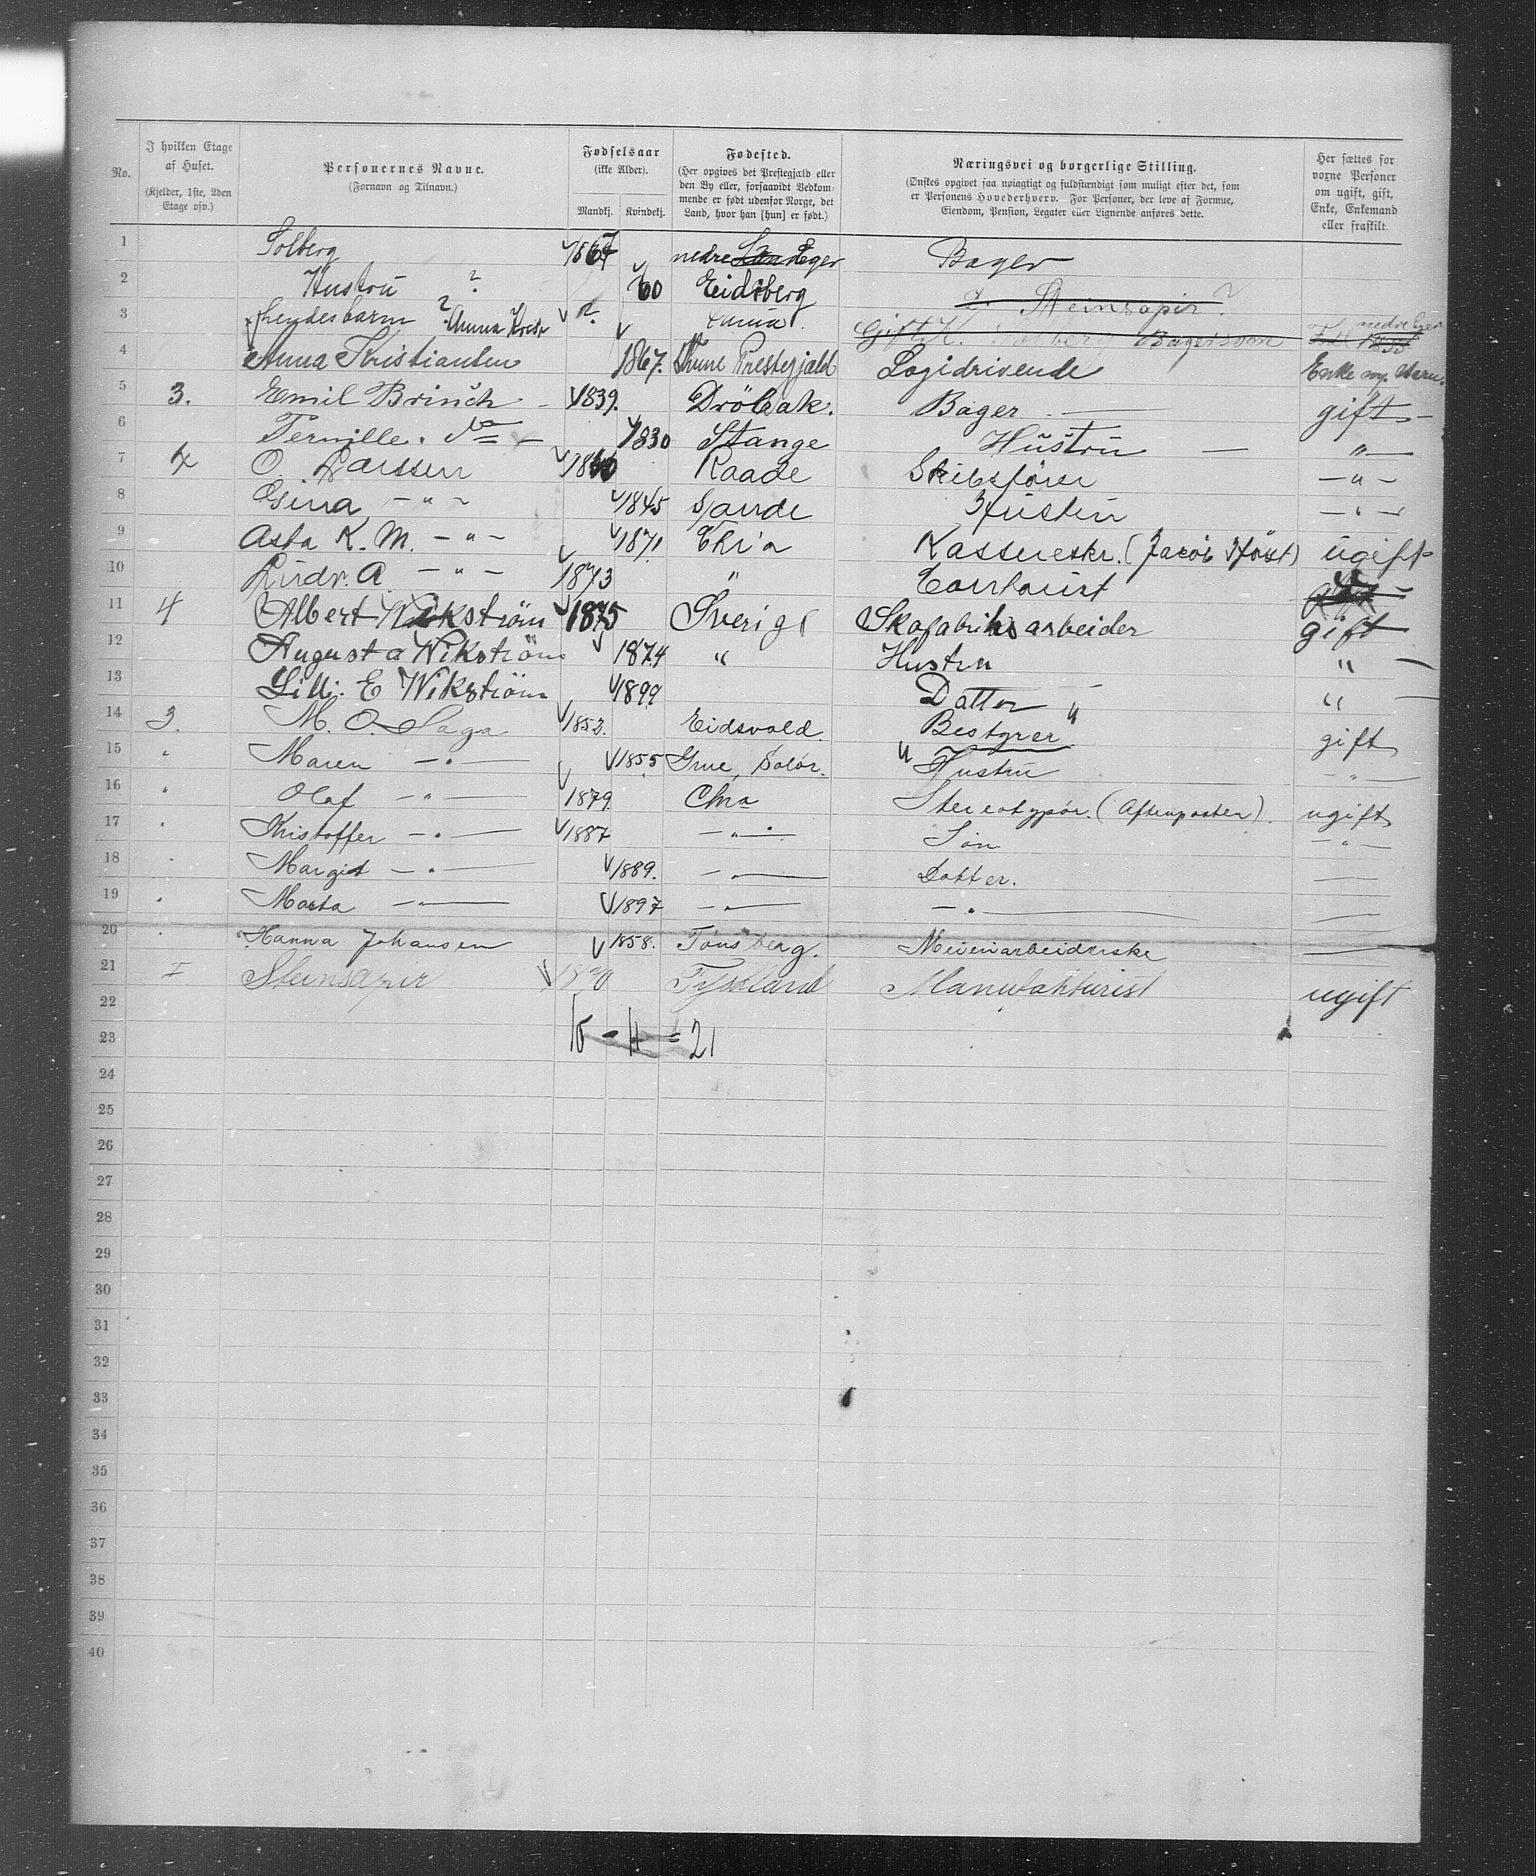 No.
I hvilken Etage af Huset. (Kjelder, 1ste, 2den Etage osv.)
Personernes Navne. (Fornavn og Tilnavn.)
Fødselsaar (ikke Alder). Mandkj. Kvindekj.
Fødested. (Her opgives det Prestegjald eller den By eller, forsaavidt Vedkommende er født udenfor Norge, det Land, hvor han [hun] er født.)
Næringsvei og borgerlige Stilling. (Ønskes opgivet saa nøiagtigt og fuldstændigt som muligt efter det, som er Personens Hovederhverv. For Personer, der leve af Formue, Eiendom, Pension, Legater eller Lignende anføres dette.
Her sættes for voxne Personer om ugift, gift, Enke, Enkemand eller fraskilt.
1 Solberg 1867 nedre Eger Bager
2 Hustru ? 60 Eidsberg Steinsapir ?
3 hendes barn ? Anna Gift Solberg Bagersvon nedre Eger
4 Anna Kristiansen 1867. Thune Prestegjald Logidrivende Enke
5 3. Emil Brinch 1839. Dröbak. Bager gift
6 Pernille. Do 1830 Stange Hustru "
7 4 O. Larssen Raade Skibsfører " 
8 Gina " 1845 Hustru "
9 Asta K. M. " 1871 Chria Kasserske. (Jacob Høst) ugift
10 Ludv. A " 1873 " Contorist
11 4 Albert Wikström 1875 Sverige Skofabrikarbeider gift
12 Augusta Wikström 1874 " Hustru "
13 Lilli. E Wikström 1899 Datter " "
14 3. M. O. Saga 1852. Eidsvold Bestyrer gift
15 " Maren " 1855 Grue, Solør. Hustru "
16 " Olaf " 1879 Chra Stereotypør. (Aftenposten). ugift
17 " Kristoffer " 1887 " Søn "
18 " Margit " 1889. " Datter.
19 " Marta " 1897 " "
20 " Hanna Johansen 1858. Tønsberg. Meieriarbeiderske
21 I Steinsapir 1870 Tyskland Manufakturist ugift
22
23 10 - 11 = 21
24
25
26
27
28
29
30
31
32
33
34
35
36
37
38
39
40